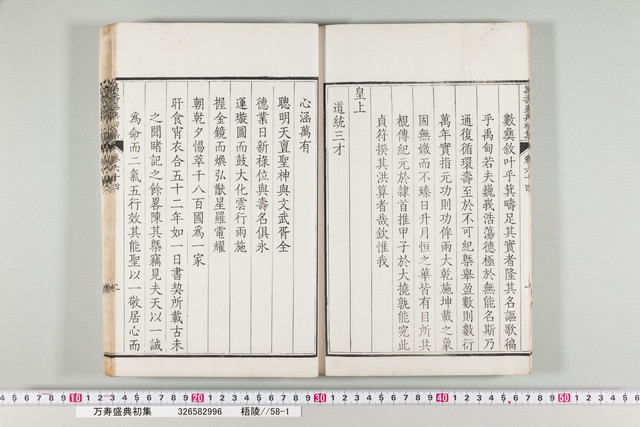 數龔敘叶乎箕疇足其實者隆其名謳歌徧
乎禹甸若夫巍峩浩蕩德極於無能名斯乃
通復循環壽至於不可紀槩舉盈數則數衍
萬年實指元功則功侔兩大乾施坤載之象
固無媺而不臻日升月恒之華皆有目所共
覩傳紀元於隷首推甲子於大撓孰能究此
貞符揆其洪算者哉欽惟我
皇上
道統三才
心涵萬有
聰明天亶聖神與文武胥全
德業日新祿位與壽名俱永
運璇圖而鼓大化雲行雨施
握金鏡而煥弘猷星羅電耀
朝乾夕惕萃千八百國爲一家
旰食宵衣合五十二年如一日書契所載古未
之聞睹記之餘畧陳其槩竊見夫天以一誠
爲命而二氣五行效其能聖以一敬居心而
萬壽盛典初集 卷六十四
万寿盛典初集 326582996 梧陵//58-1
10 20 30 40 50